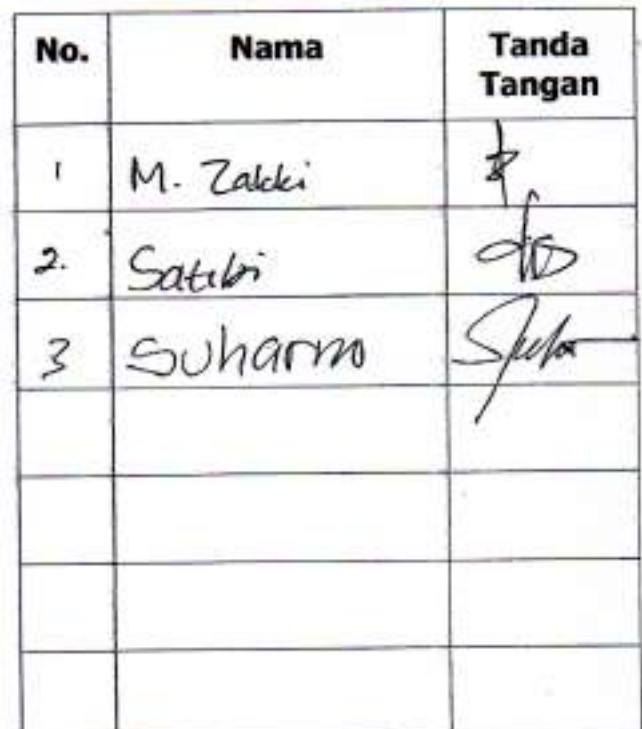 No. Nama Tanda
Tangan
1 M. Zakki
2. Satibi
3 Suharno